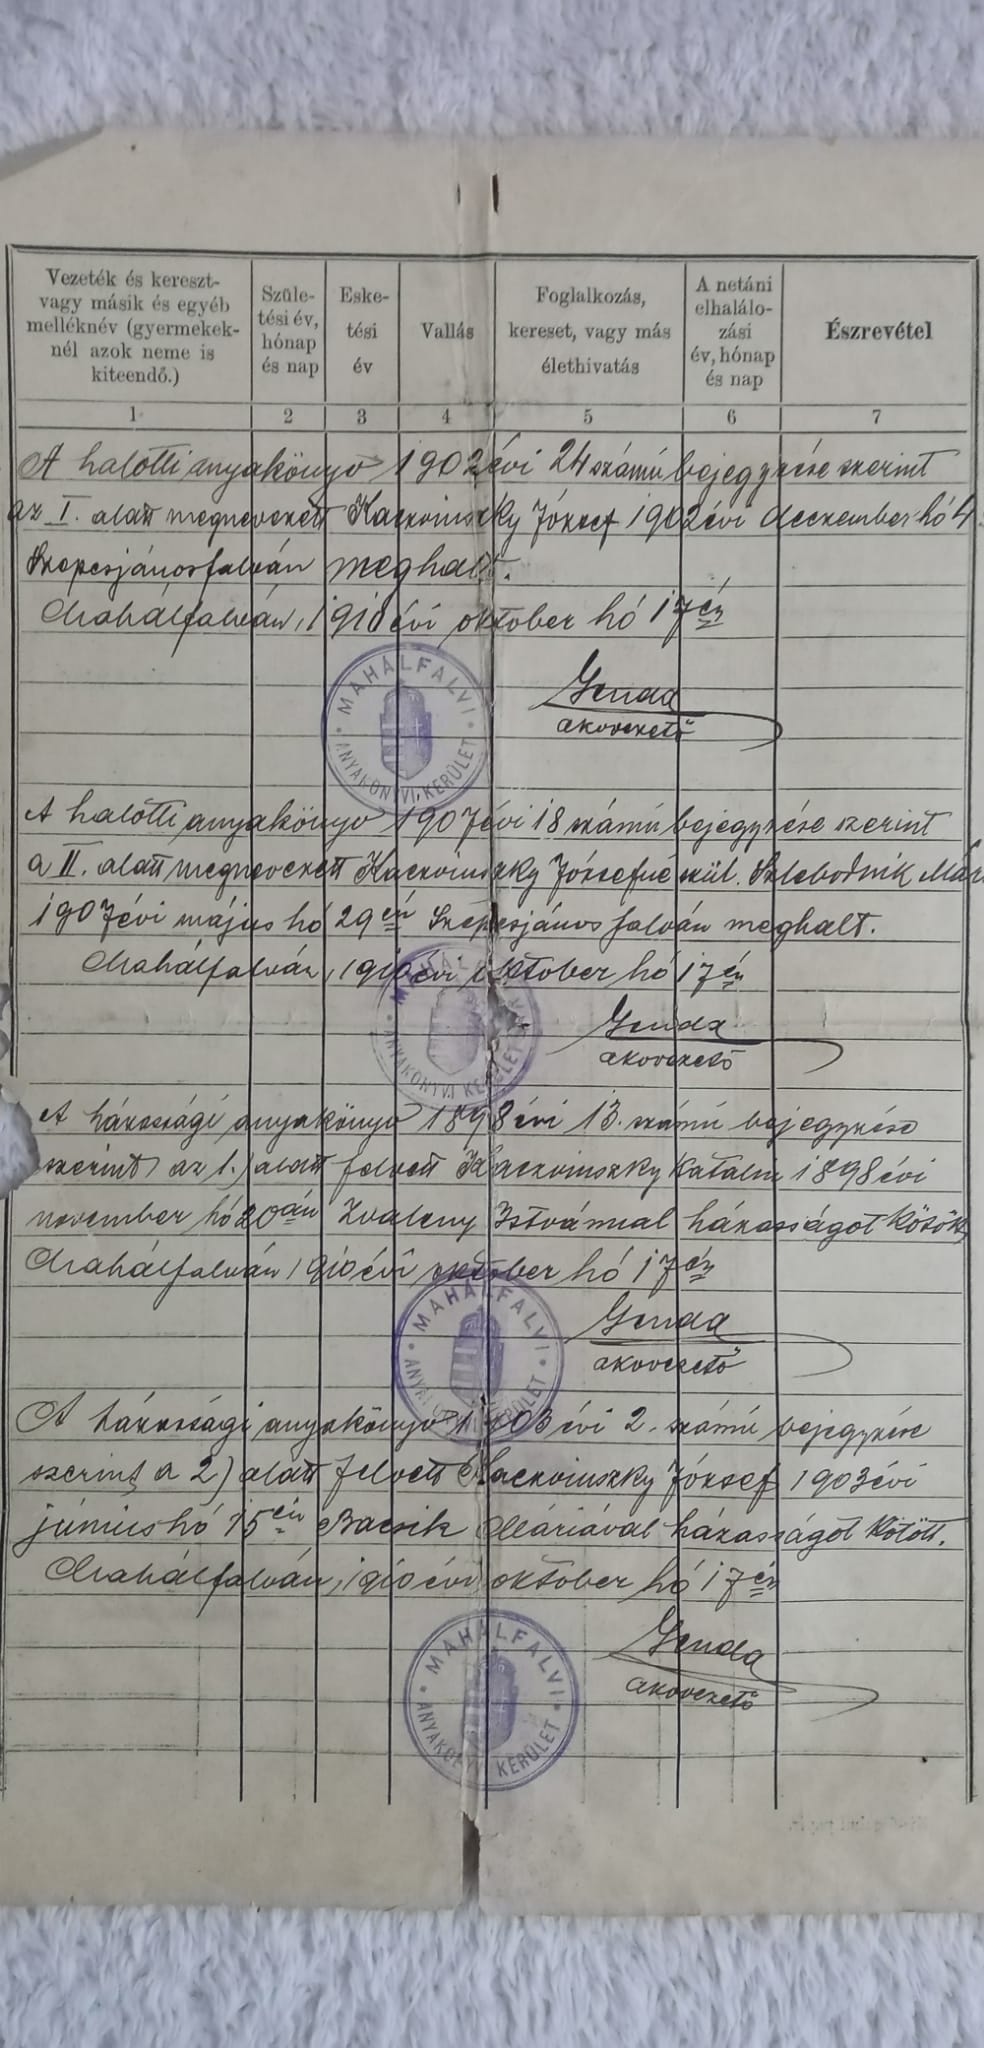 Vezeték és kereszt-
vagy másik és egyéb
melléknév (gyermekek-
nél azok neme is
kiteendő.)
Szüle-
tési év,
hónap
és nap
Eske-
tési
év
Vallás
Foglalkozás,
kereset, vagy más
élethivatás
A netáni
elhalálo-
zási
év, hónap
és nap
Észrevétel
1 2 3 4 5 6 7
A halotti anyakönyv 1902 évi 24 számú bejegyzése szerint
az I. alatt megnevezett Kacvinszky József 1902 évi deczember hó 4
Szepesjánosfalván meghalt.
Mahálfalván, 1910 évi október hó 17én
Genda
akvvezető
MAHÁLFALVI
ANYAKÖNYVI KERÜLET
A halotti anyakönyv 1907 évi 18 számú bejegyzése szerint
a II. alatt megnevezett Kacvinszky Józsefné szül. Szlebodnik Már
1907 évi május hó 29én Szepesjánosfalván meghalt.
Mahálfalván, 1910 évi október hó 17én
Genda
akvvezető
ANYAKÖNYVI KERÜLET
A házassági anyakönyv 1898 évi 13. számú bejegyzése
szerint az 1.) alatt felvett Kacvinszky Katalin 1898 évi
november hó 20án Zvaleny Istvánnal házasságot kötött,
Mahálfalván 1910 évi október hó 17én
Genda
akvvezető
MAHÁLFALVI
ANYAKÖNYVI KERÜLET
A házassági anyakönyv 1903 évi 2. számú bejegyzése
szerint a 2) alatt felvett Kacvinszky József 1903 évi
június hó 15én Bacsik Máriával házasságot kötött.
Mahálfalván, 1910 évi október hó 17én
Genda
akvvezető
MAHÁLFALVI
ANYAKÖNYVI KERÜLET